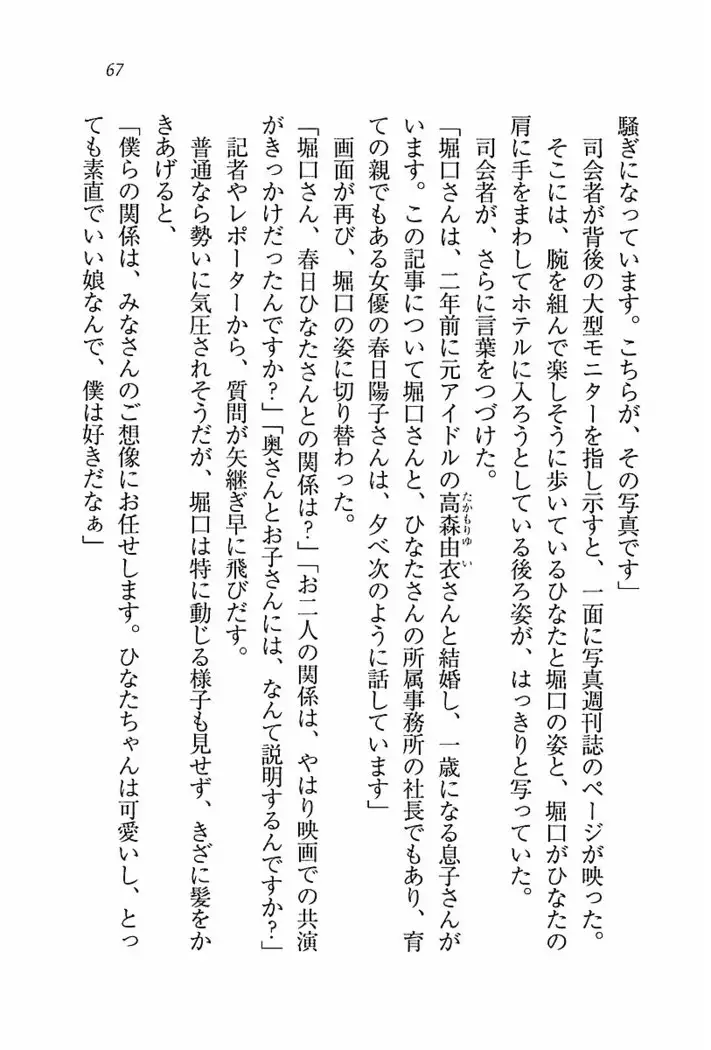 67
騒ぎになっています。こちらが、その写真です」
　司会者が背後の大型モニターを指し示すと、一面に写真週刊誌のページが映った。
　そこには、腕を組んで楽しそうに歩いているひなたと堀口の姿と、堀口がひなたの
肩に手をまわしてホテルに入ろうとしている後ろ姿が、はっきりと写っていた。
　司会者が、さらに言葉をつづけた。
「堀口さんは、二年前に元アイドルの高森由衣さんと結婚し、一歳になる息子さんが
たかもりゆい
います。この記事について堀口さんと、ひなたさんの所属事務所の社長でもあり、育
ての親でもある女優の春日陽子さんは、夕べ次のように話しています」
　画面が再び、堀口の姿に切り替わった。
「堀口さん、春日ひなたさんとの関係は？」「お二人の関係は、やはり映画での共演
がきっかけだったんですか？」「奥さんとお子さんには、なんて説明するんですか？」
　記者やレポーターから、質問が矢継ぎ早に飛びだす。
　普通なら勢いに気圧されそうだが、堀口は特に動じる様子も見せず、きざに髪をか
きあげると、
「僕らの関係は、みなさんのご想像にお任せします。ひなたちゃんは可愛いし、とっ
ても素直でいい娘なんで、僕は好きだなぁ」